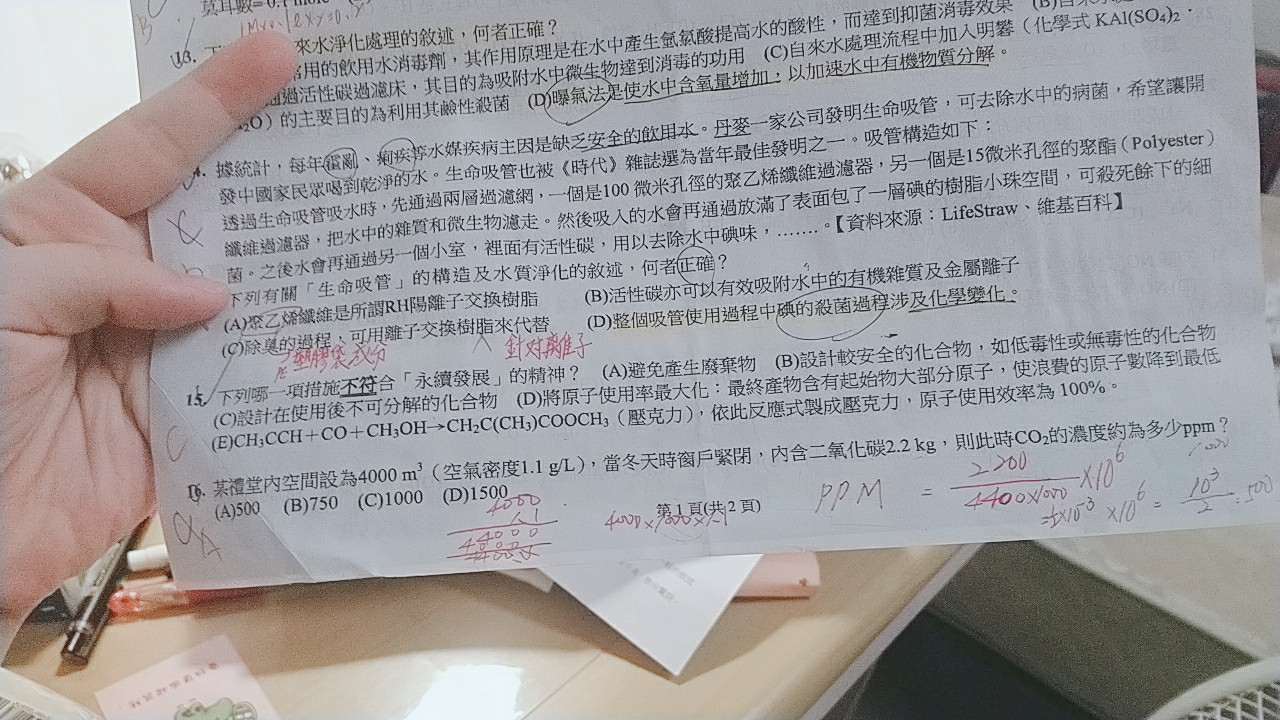 莫耳數=0.1 mole
13. 來水淨化處理的敘述，何者正確？
用的飲用水消毒劑，其作用原理是在水中產生氫氯酸提高水的酸性，而達到抑菌消毒效果 (B)自來水
通過活性碳過濾床，其目的為吸附水中微生物達到消毒的功用 (C)自來水處理流程中加入明礬（化學式 KAl(SO₄)₂．
₂O）的主要目的為利用其鹼性殺菌 (D)曝氣法是使水中含氧量增加，以加速水中有機物質分解。
4. 據統計，每年霍亂、痢疾等水媒疾病主因是缺乏安全的飲用水。丹麥一家公司發明生命吸管，可去除水中的病菌，希望讓開
發中國家民眾喝到乾淨的水。生命吸管也被《時代》雜誌選為當年最佳發明之一。吸管構造如下：
透過生命吸管吸水時，先通過兩層過濾網，一個是100 微米孔徑的聚乙烯纖維過濾器，另一個是15微米孔徑的聚酯（Polyester）
纖維過濾器，把水中的雜質和微生物濾走。然後吸入的水會再通過放滿了表面包了一層碘的樹脂小珠空間，可殺死餘下的細
菌。之後水會再通過另一個小室，裡面有活性碳，用以去除水中碘味，…….【資料來源：LifeStraw、維基百科】
下列有關「生命吸管」的構造及水質淨化的敘述，何者正確？
(A)聚乙烯纖維是所謂RH陽離子交換樹脂 (B)活性碳亦可以有效吸附水中的有機雜質及金屬離子
(C)除臭的過程、可用離子交換樹脂來代替 (D)整個吸管使用過程中碘的殺菌過程涉及化學變化。
塑膠袋成分 針對陽離子
15. 下列哪一項措施不符合「永續發展」的精神？ (A)避免產生廢棄物 (B)設計較安全的化合物，如低毒性或無毒性的化合物
(C)設計在使用後不可分解的化合物 (D)將原子使用率最大化：最終產物含有起始物大部分原子，使浪費的原子數降到最低
(E)CH₃CCH＋CO＋CH₃OH→CH₂C(CH₃)COOCH₃（壓克力），依此反應式製成壓克力，原子使用效率為 100%。
C
16. 某禮堂內空間設為4000 m³（空氣密度1.1 g/L），當冬天時窗戶緊閉，內含二氧化碳2.2 kg，則此時CO₂的濃度約為多少ppm？
(A)500 (B)750 (C)1000 (D)1500
A
第 1 頁(共 2 頁)
PPM = 2200 / 4400×1000 ×10⁶
×10⁻³ ×10⁶ = 10³ / 2 = 500
4000
1.1
4000